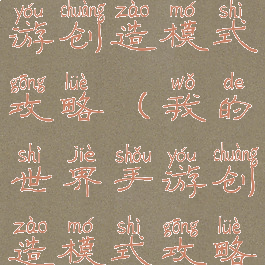 yóu chuàng zào mó shì
游创造模式
gōng lüè wǒ de
攻略(我的
shì jiè shǒu yóu chuàng
世界手游创
zào mó shì gōng lüè
造模式攻略